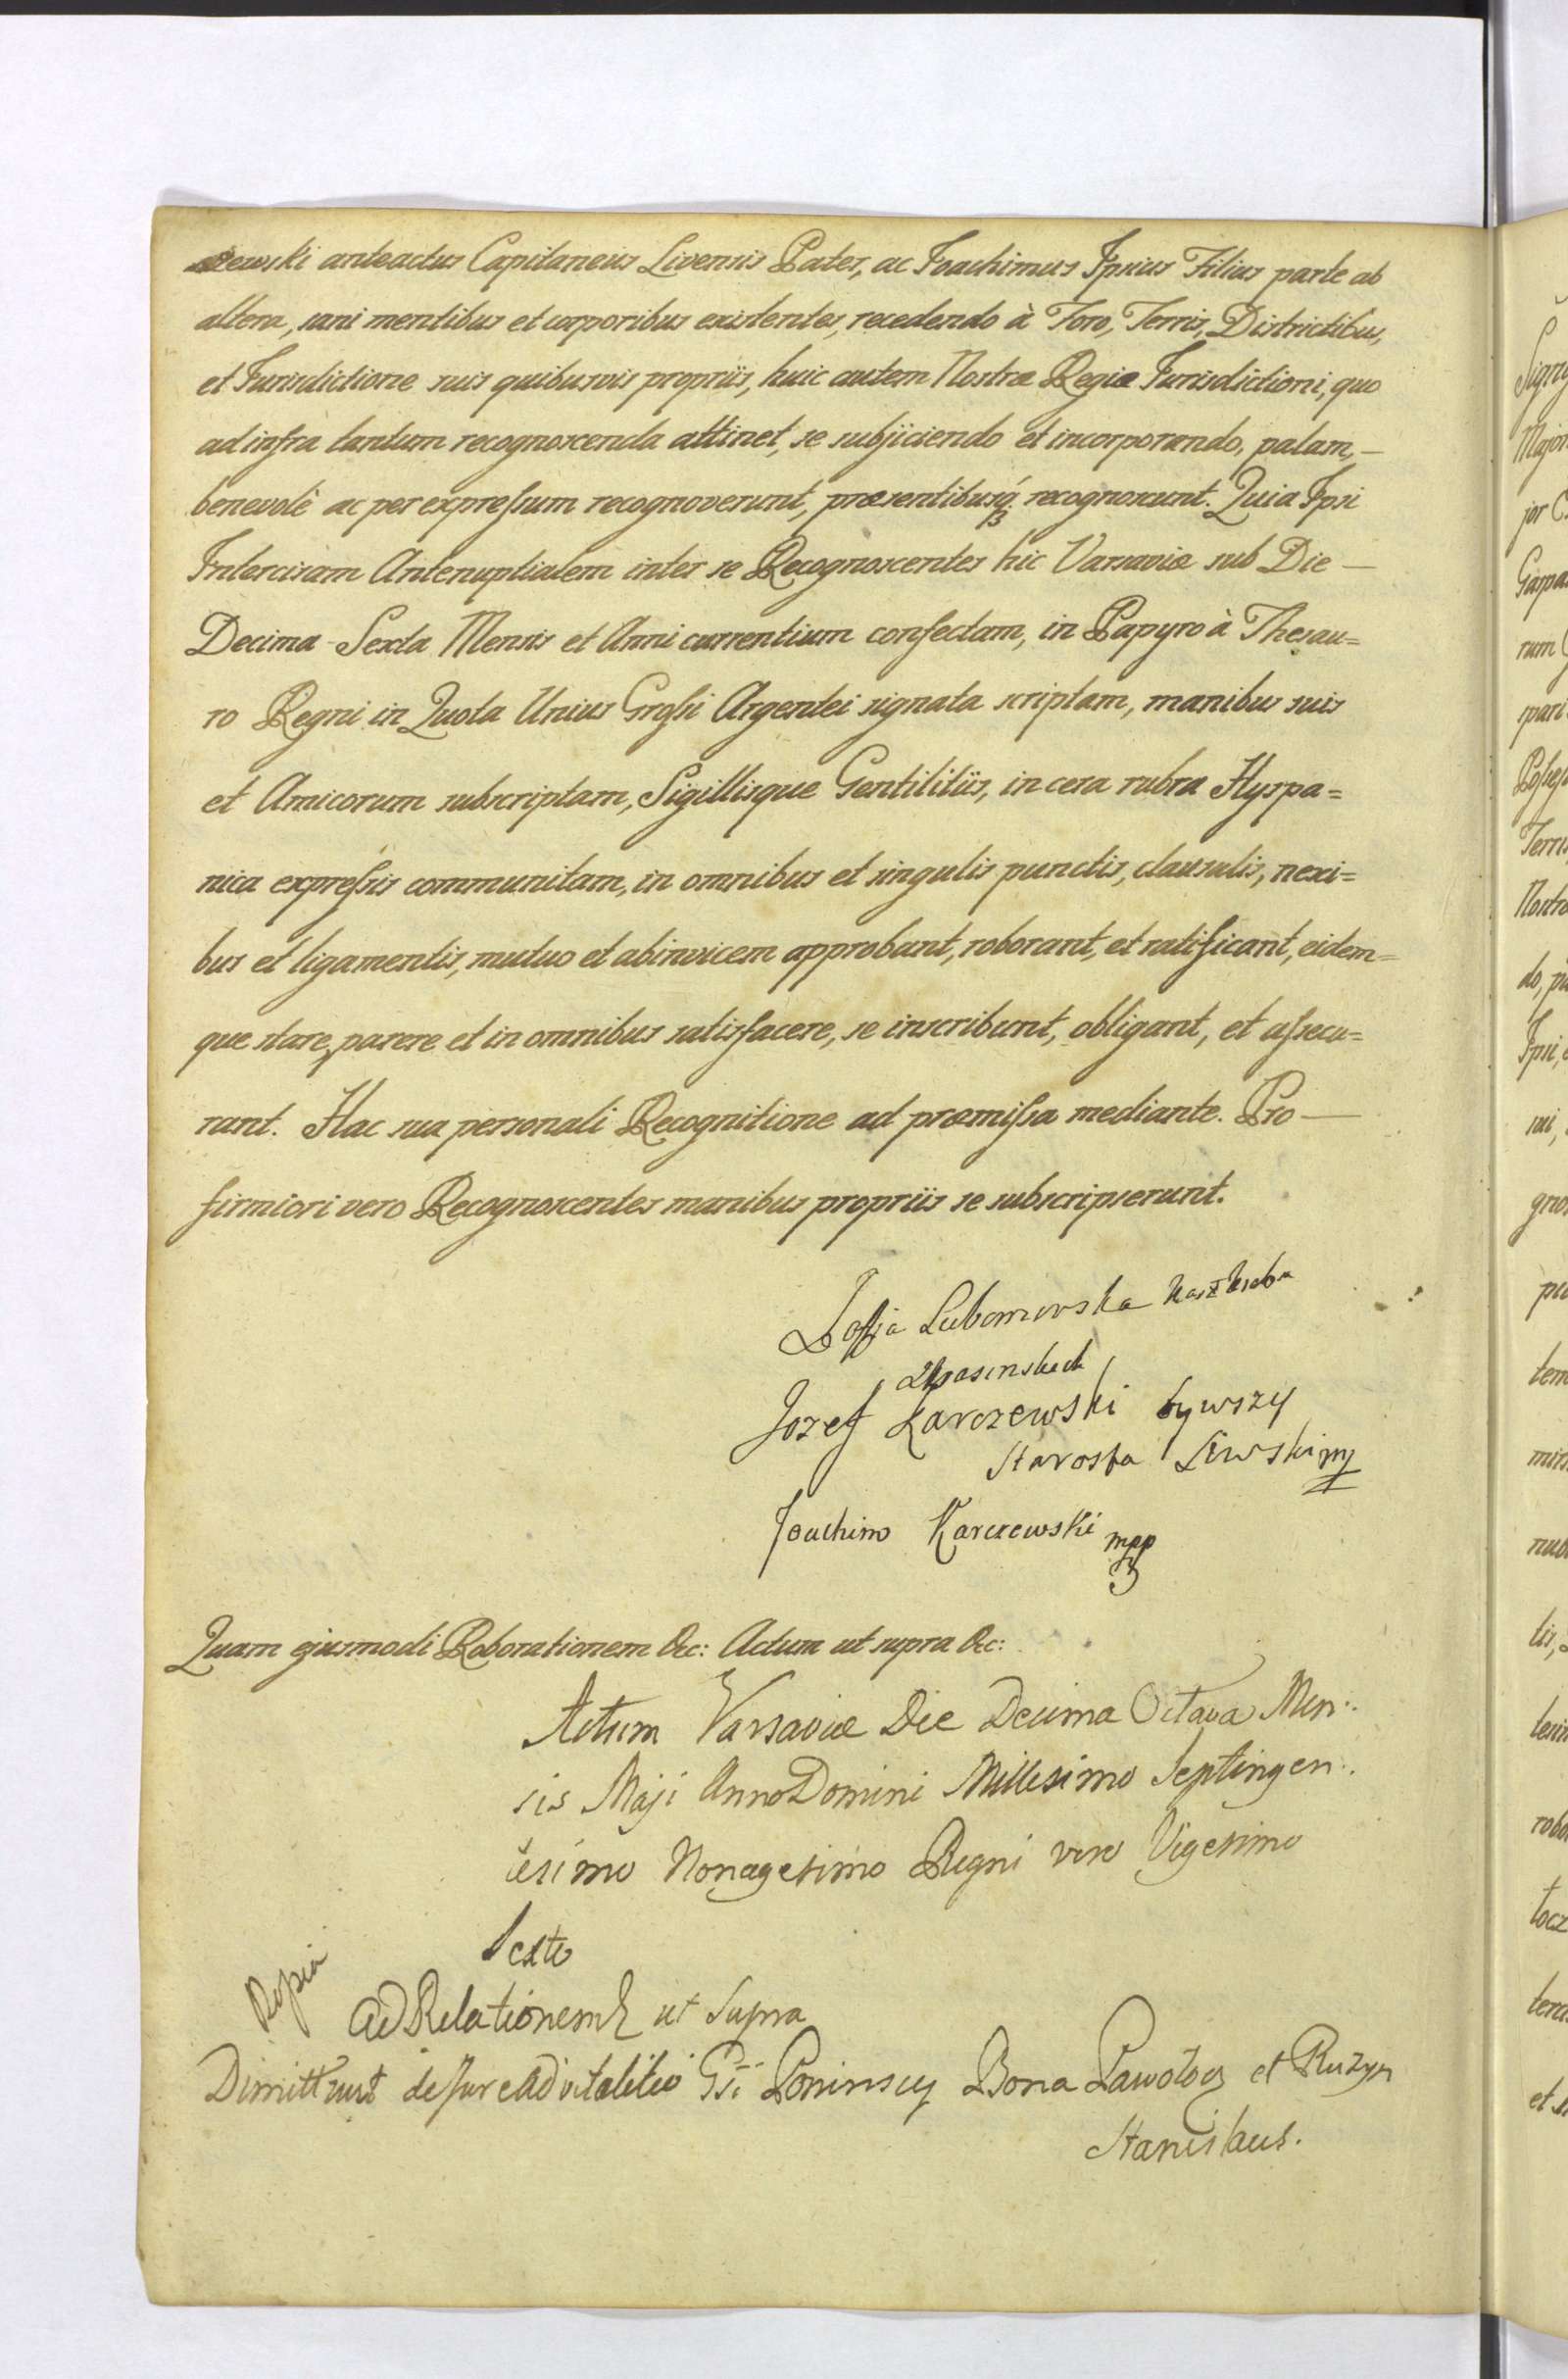 zewski anteactus Capitaneus Livensis Pater, ac Joachimus Ipsius Filius parte ab
altera, sani mentibus et corporibus existentes, recedendo à Foro, Terris, Districtibus,
et Jurisdictione suis quibusvis propriis, huic autem Nostræ Regiæ Jurisdictioni, quo
ad infra tantum recognoscenda attinet, se subjiciendo et incorporando, palam, —
benevolè ac per expressum recognoverunt, præsentibusq́ recognoscunt. Quia Ipsi
Intercisam Antenuptialem inter se Recognoscentes hic Varsaviæ sub Die —
Decima-Sexta Mensis et Anni currentium confectam, in Papyro à Thesau=
ro Regni in Quota Unius Grossi Argentei signata scriptam, manibus suis
et Amicorum subscriptam, Sigillisque Gentilitiis, in cera rubra Hyspa=
nica expressis communitam, in omnibus et singulis punctis, clausulis, nexi=
bus et ligamentis, mutuo et abinvicem approbant, roborant, et ratificant, eidem=
que stare, parere et in omnibus satisfacere, se inscribunt, obligant, et assecu=
rant. Hac sua personali Recognitione ad præmissa mediante. Pro —
firmiori vero Recognoscentes manibus propriis se subscripserunt.
Zofja Lubomirska
Jozef Karczewski bywszy
Starosta Liwski mp
Joachim Karczewski mpp
Quam ejusmodi Roborationem &c: Actum ut supra &c:
Actum Varsaviæ Die Decima Octava Men:
sis Maji Anno Domini Millesimo Septingen:
tesimo Nonagesimo Regni vero Vigesimo
Sexto
Ad Relationem ut Supra
Dimittunt de Jure Advitalitio Gsi Poninscy Bona Pawołocz et Ruzyn
Stanislaus.